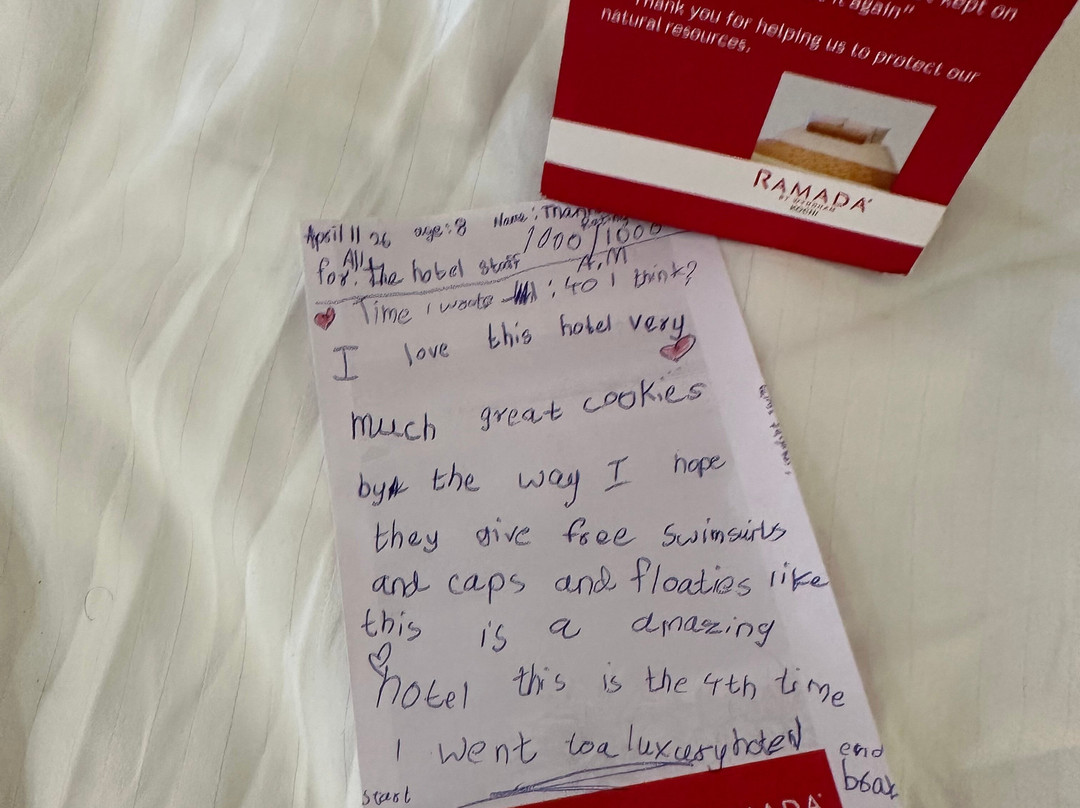 kept on
it again"
Thank you for helping us to protect our
natural resources.
RAMADA
BY WYNDHAM
KOCHI
April 11 26 age:8 Name:
Rating
1000/1000
for: All the hotel staff
A.M
Time I wrote :40 I think?
I love this hotel very
much great cookies
by the way I hope
they give free swimsuits
and caps and floaties like
this is a amazing
hotel this is the 4th time
I went to a luxcury hotel
start
end